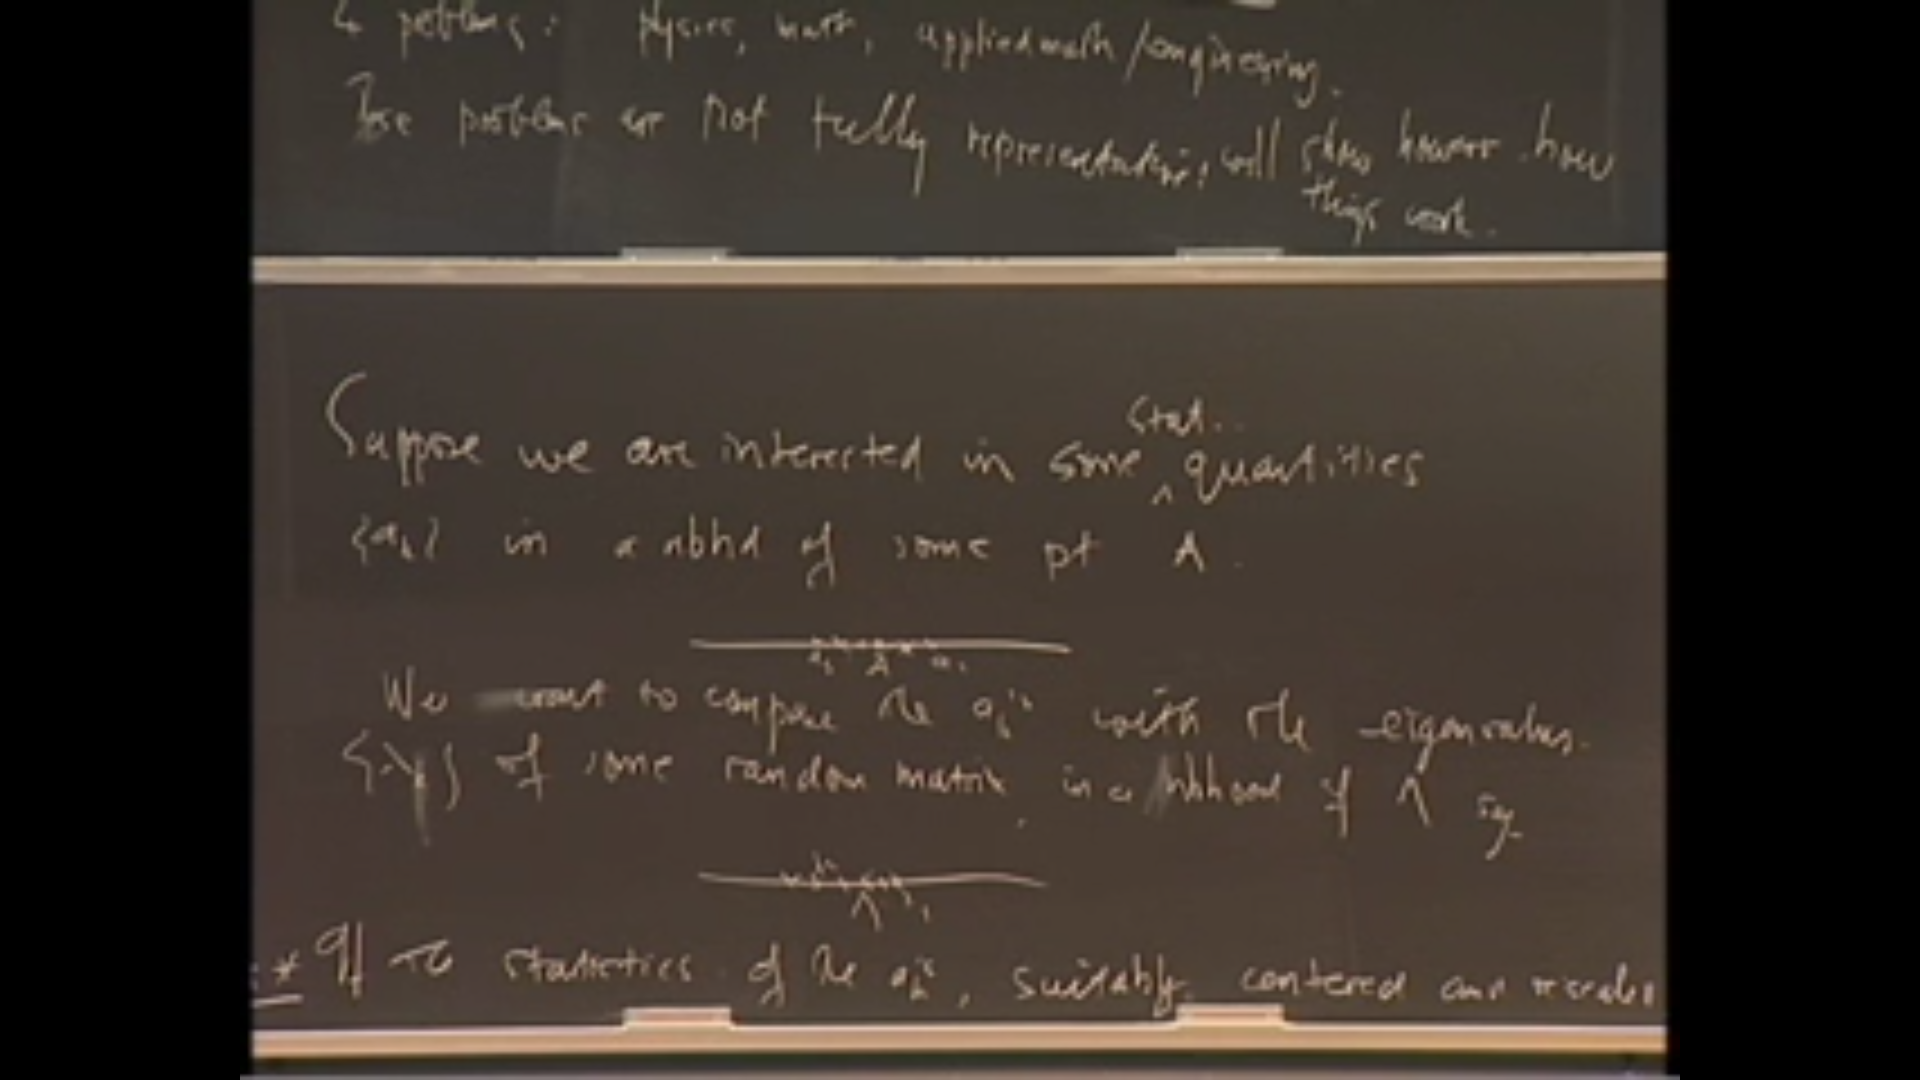 4 problems: physics, math, applied math/engineering.
These problems are not fully representative, will show however how
things work.
stat.
Suppose we are interested in some ^ quantities
{a_k} in a nbhd of some pt A.
a_k A a_1
We want to compare the a_k's with the eigenvalues
{λ_j} of some random matrix in a nbhood of Λ say
Λ
* If the statistics of the a_k's, suitably centered and